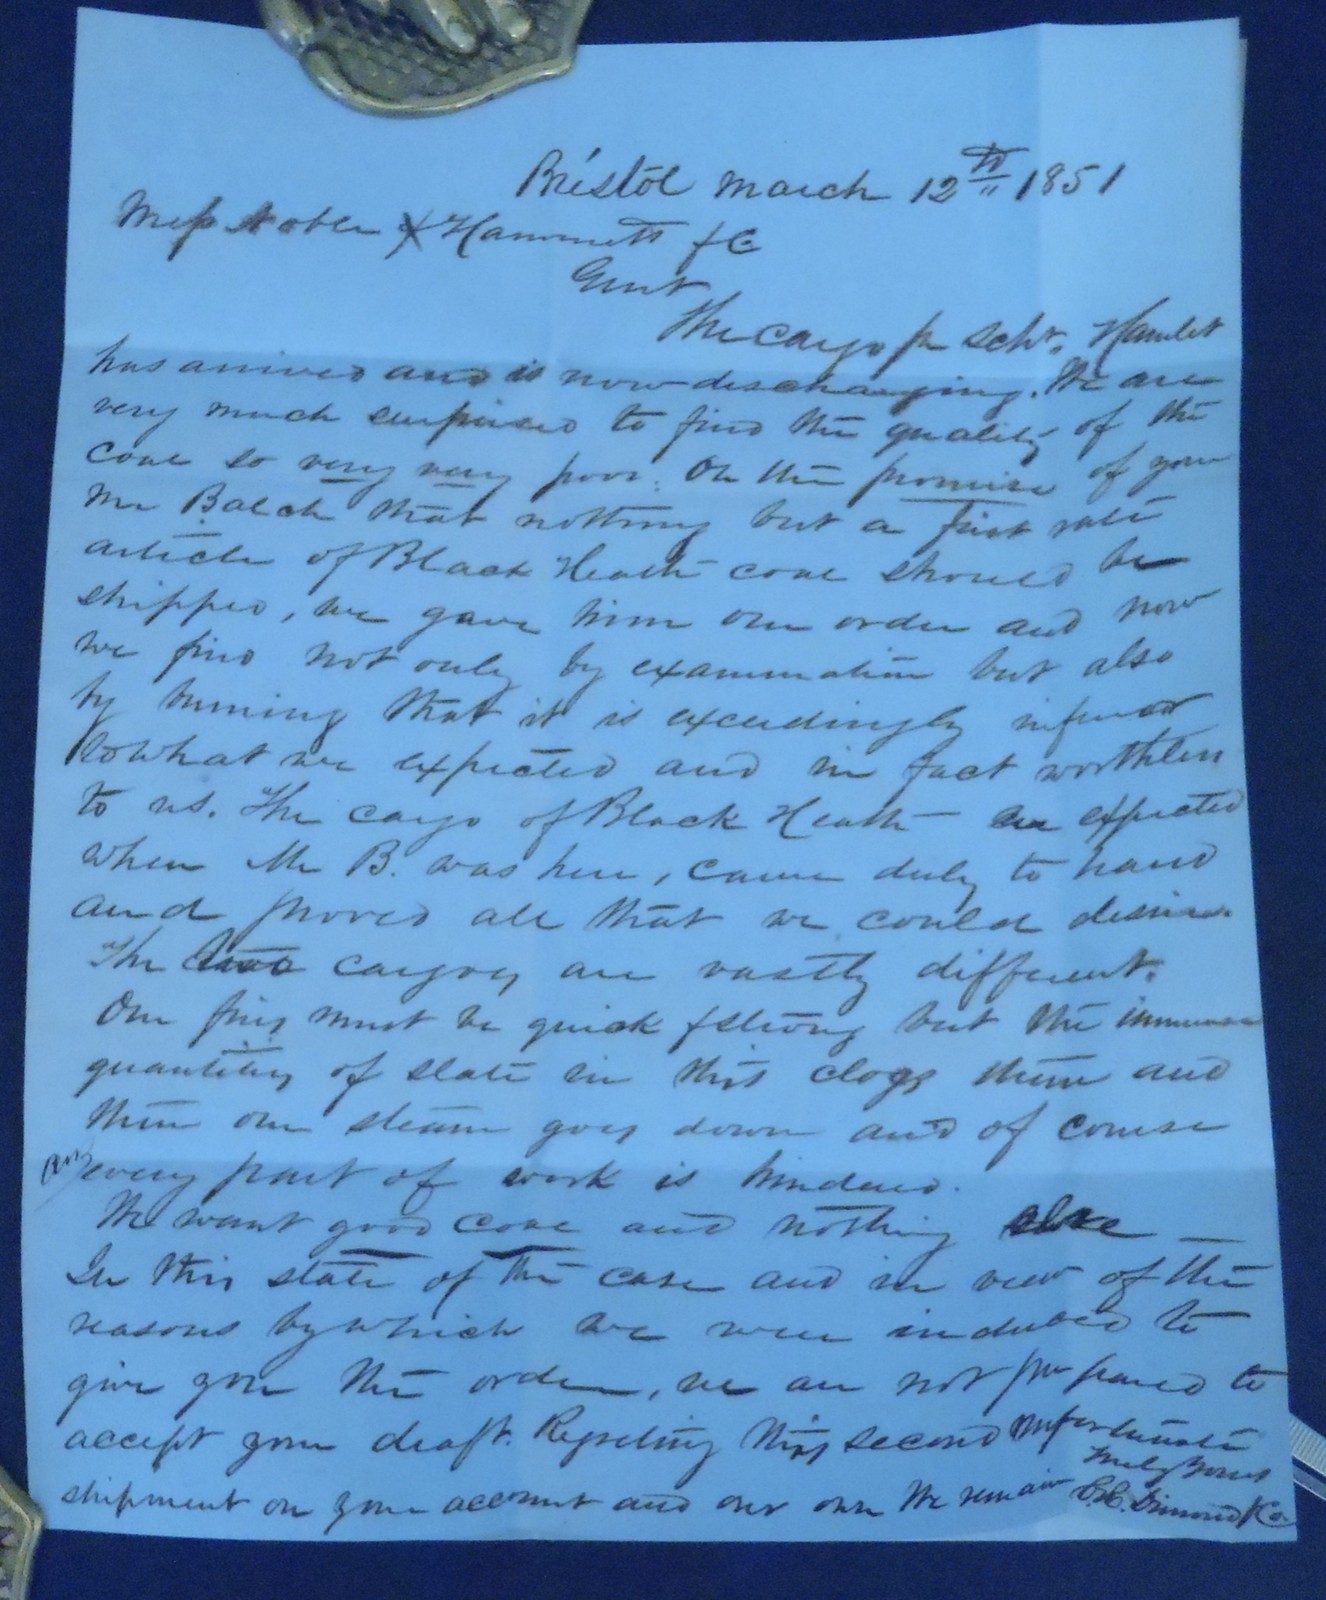 Bristol March 12th 1851
Mess Noble & Hammett & C
Gent
The cargo pr Schr. Hamlet
has arrived and is now discharging. We are
very much surprised to find the quality of the
coal so very very poor. On the promise of your
Mr Balch that nothing but a first rate
article of Black Heath coal should be
shipped, we gave him our order and now
we find not only by examination but also
by burning that it is exceedingly inferior
to what we expected and in fact worthless
to us. The cargo of Black Heath we expected
when Mr B. was here, came duly to hand
and proved all that we could desire.
The two cargoes are vastly different.
Our fires must be quick & strong but the immense
quantity of slate in this clogs them and
then our steam goes down and of course
every part of work is hindered.
We want good coal and nothing else
In this state of the case and in view of the
reasons by which we were induced to
give you the order, we are not prepared to
accept your draft. Regretting this second unfortunate
shipment on your account and our own We remain
Truly Yours
Dimond & Co.